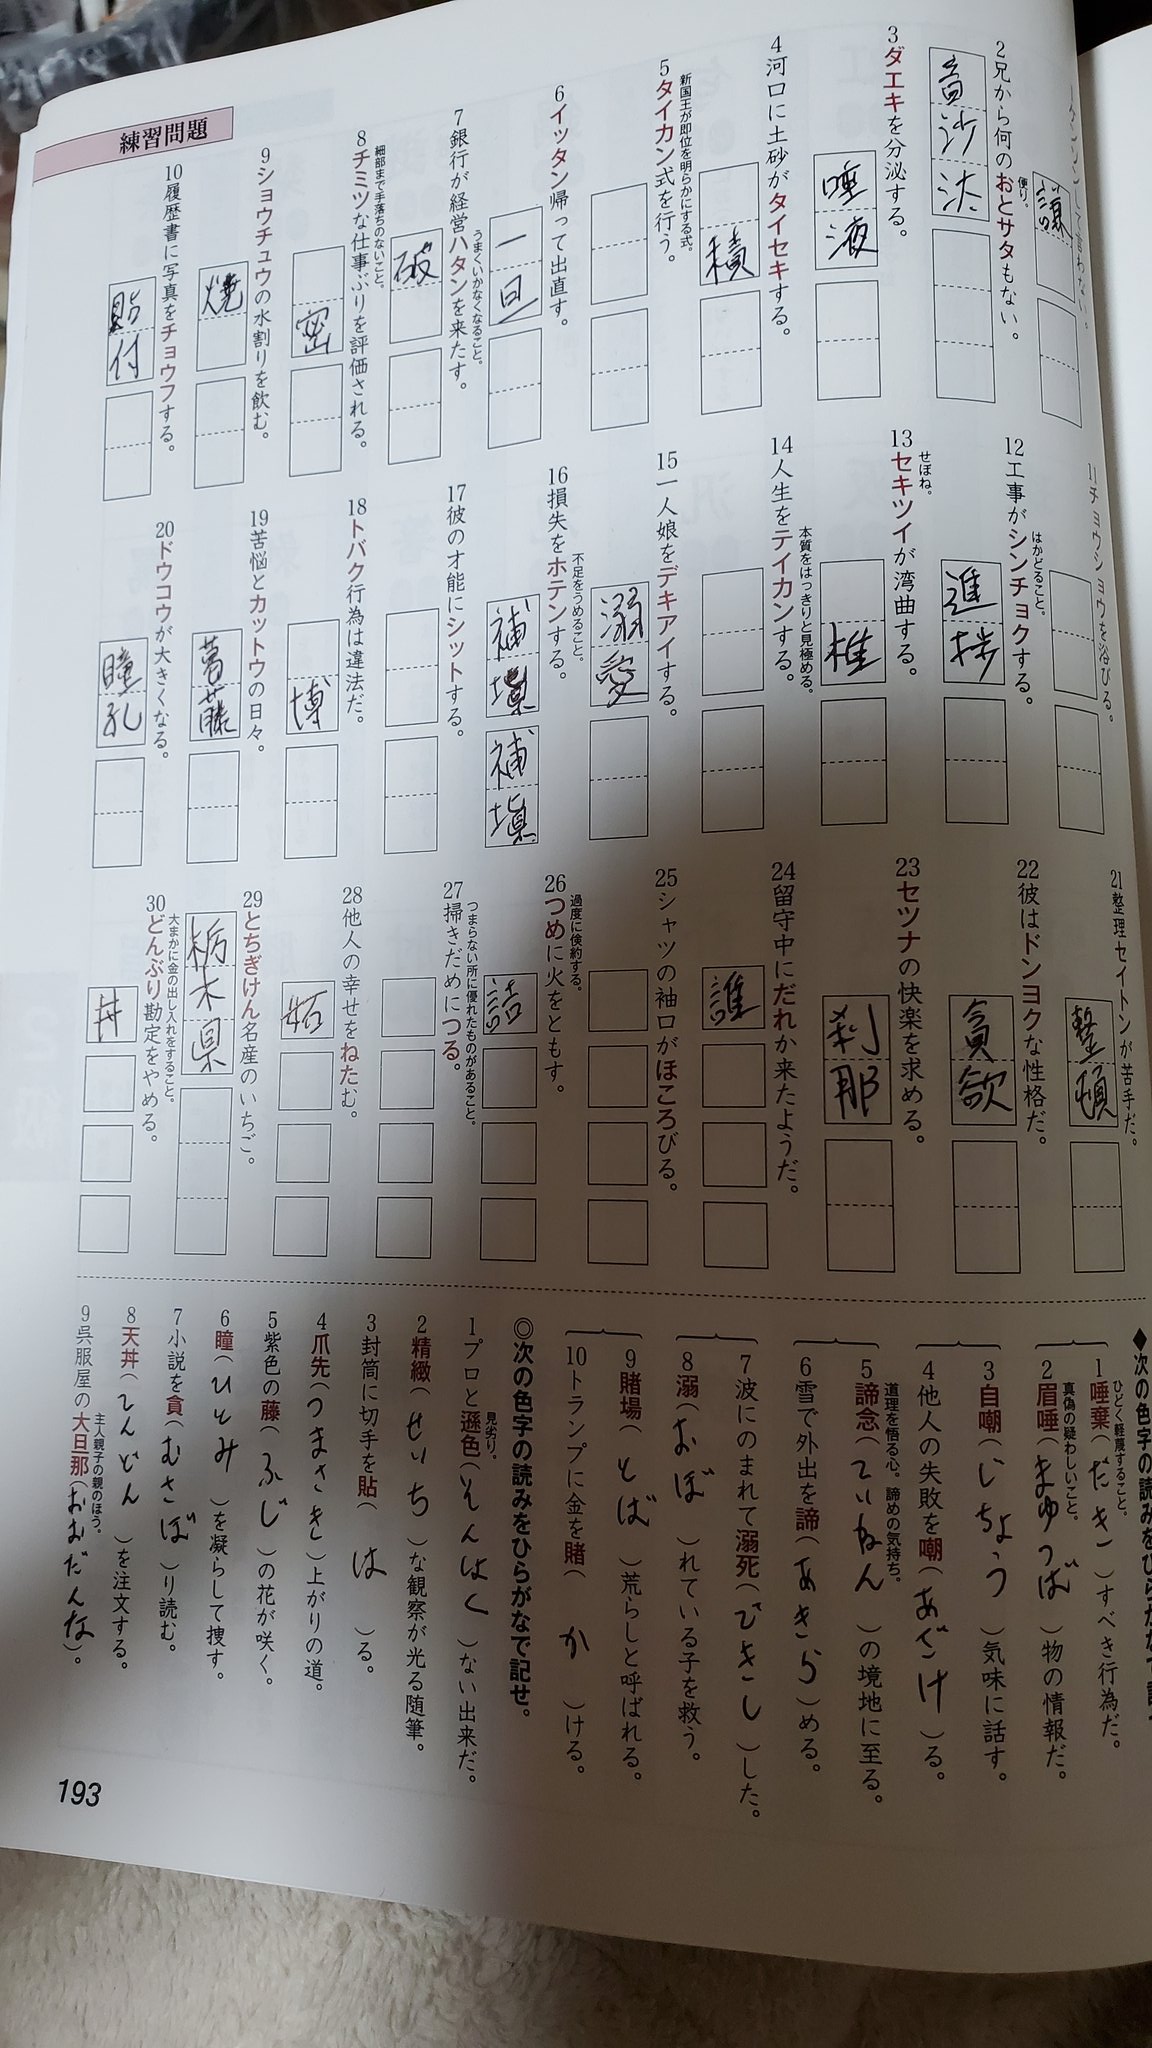 練習問題
謙
2 兄から何のおとサタもない。
便り。
音沙汰
3 ダエキを分泌する。
唾液
4 河口に土砂がタイセキする。
積
5 タイカン式を行う。
新国王が即位を明らかにする式。
6 イッタン帰って出直す。
一旦
7 銀行が経営ハタンを来たす。
うまくいかなくなること。
破
8 チミツな仕事ぶりを評価される。
細部まで手落ちのないこと。
密
9 ショウチュウの水割りを飲む。
焼
10 履歴書に写真をチョウフする。
貼付
11 チョウショウを浴びる。
12 工事がシンチョクする。
はかどること。
進捗
13 セキツイが湾曲する。
せぼね。
椎
14 人生をテイカンする。
本質をはっきりと見極める。
15 一人娘をデキアイする。
溺愛
16 損失をホテンする。
不足をうめること。
補塡
補塡
17 彼の才能にシットする。
18 トバク行為は違法だ。
博
19 苦悩とカットウの日々。
葛藤
20 ドウコウが大きくなる。
瞳孔
21 整理セイトンが苦手だ。
整頓
22 彼はドンヨクな性格だ。
貪欲
23 セツナの快楽を求める。
刹那
24 留守中にだれか来たようだ。
誰
25 シャツの袖口がほころびる。
26 つめに火をともす。
過度に倹約する。
詰
27 掃きだめにつる。
つまらない所に優れたものがあること。
28 他人の幸せをねたむ。
妬
29 とちぎけん名産のいちご。
栃木県
30 どんぶり勘定をやめる。
大まかに金の出し入れをすること。
丼
1 唾棄(だき)すべき行為だ。
ひどく軽蔑すること。
2 眉唾(まゆつば)物の情報だ。
真偽の疑わしいこと。
3 自嘲(じちょう)気味に話す。
4 他人の失敗を嘲(あざけ)る。
5 諦念(ていねん)の境地に至る。
道理を悟る心。諦めの気持ち。
6 雪で外出を諦(あきら)める。
7 波にのまれて溺死(できし)した。
8 溺(おぼ)れている子を救う。
9 賭場(とば)荒らしと呼ばれる。
10 トランプに金を賭(か)ける。
◎次の色字の読みをひらがなで記せ。
1 プロと遜色(そんしょく)ない出来だ。
見劣り。
2 精緻(せいち)な観察が光る随筆。
3 封筒に切手を貼(は)る。
4 爪先(つまさき)上がりの道。
5 紫色の藤(ふじ)の花が咲く。
6 瞳(ひとみ)を凝らして捜す。
7 小説を貪(むさぼ)り読む。
8 天丼(てんどん)を注文する。
9 呉服屋の大旦那(おおだんな)。
主人親子の親のほう。
193